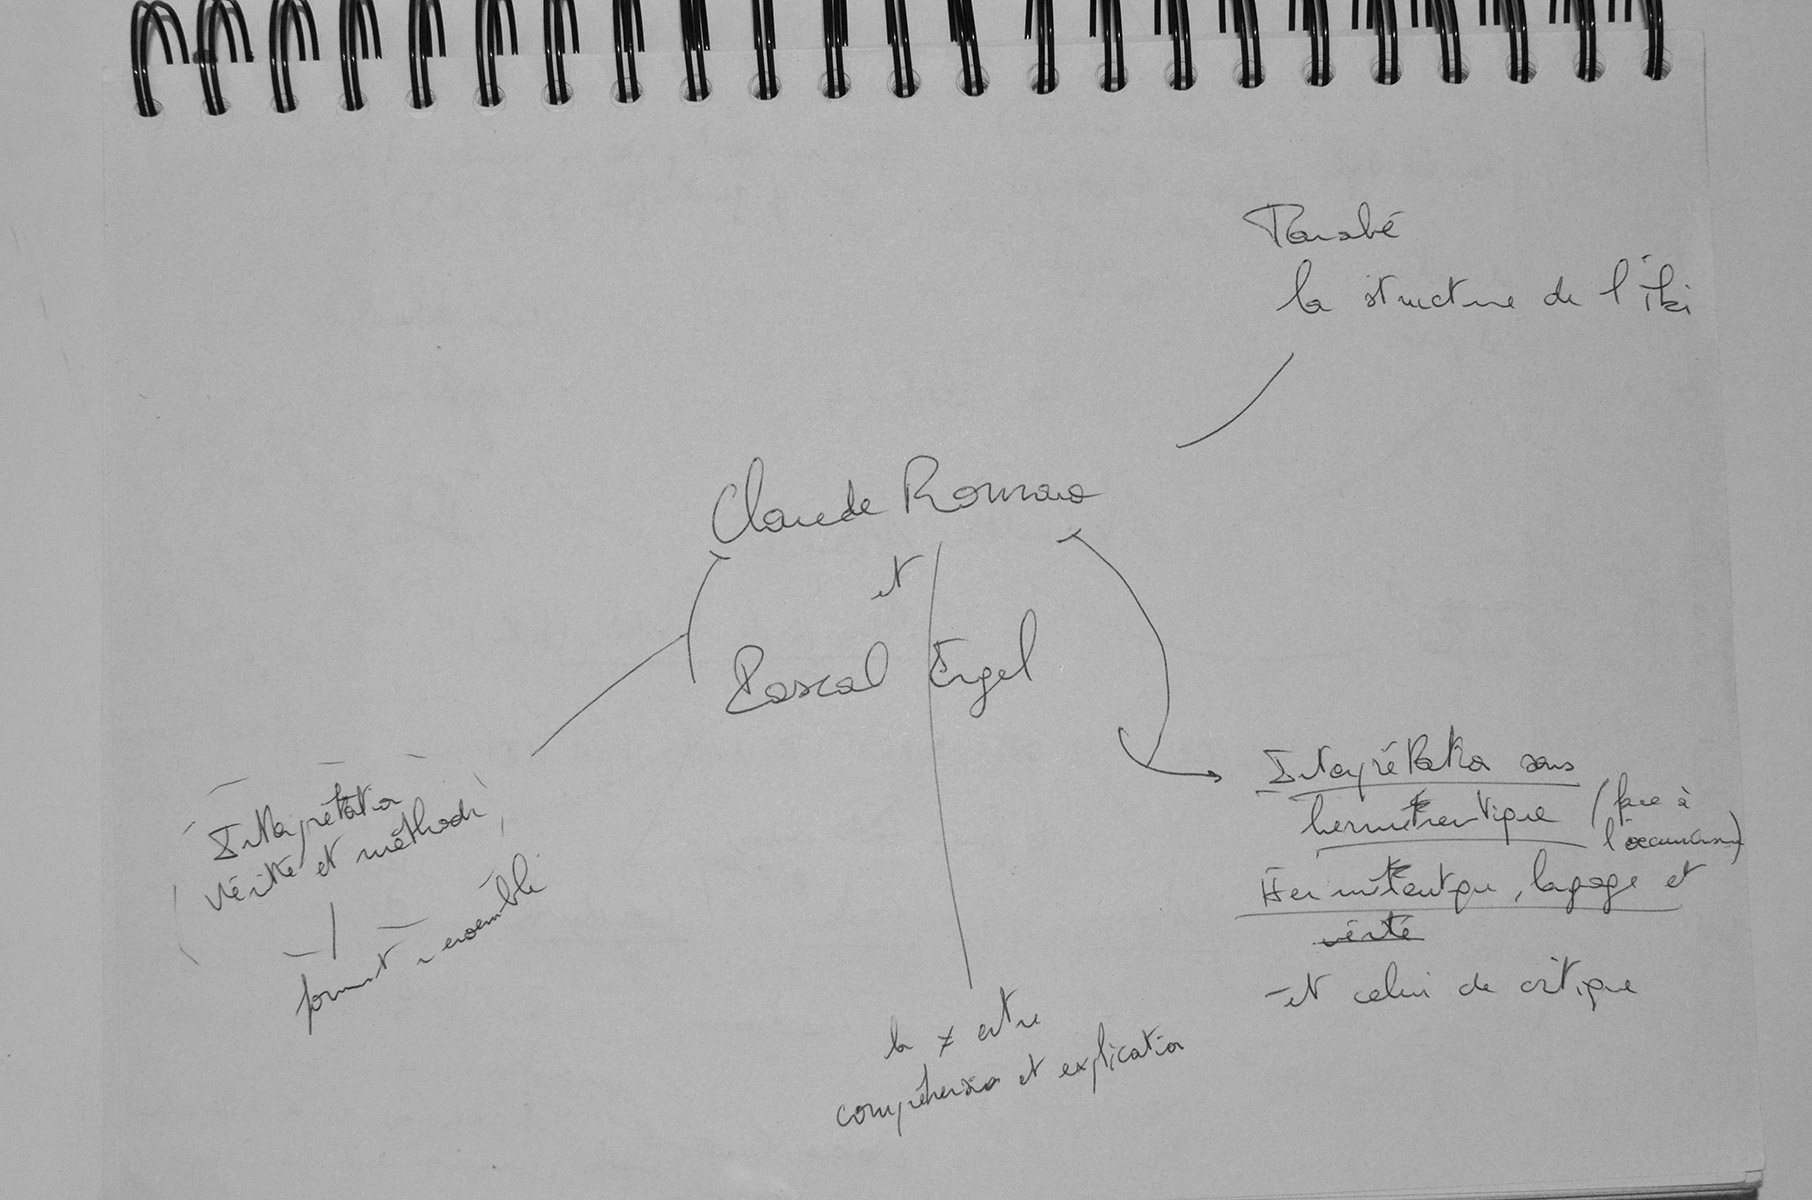 Tanabé
la structure de l'iki
Claude Romano
et
Pascal Engel
Interprétation
vérité et méthode
forment ensemble
Interprétation sans
herméneutique (face à
Herméneutique, langage et
vérité
et celui de critique
la ≠ entre
compréhension et explication